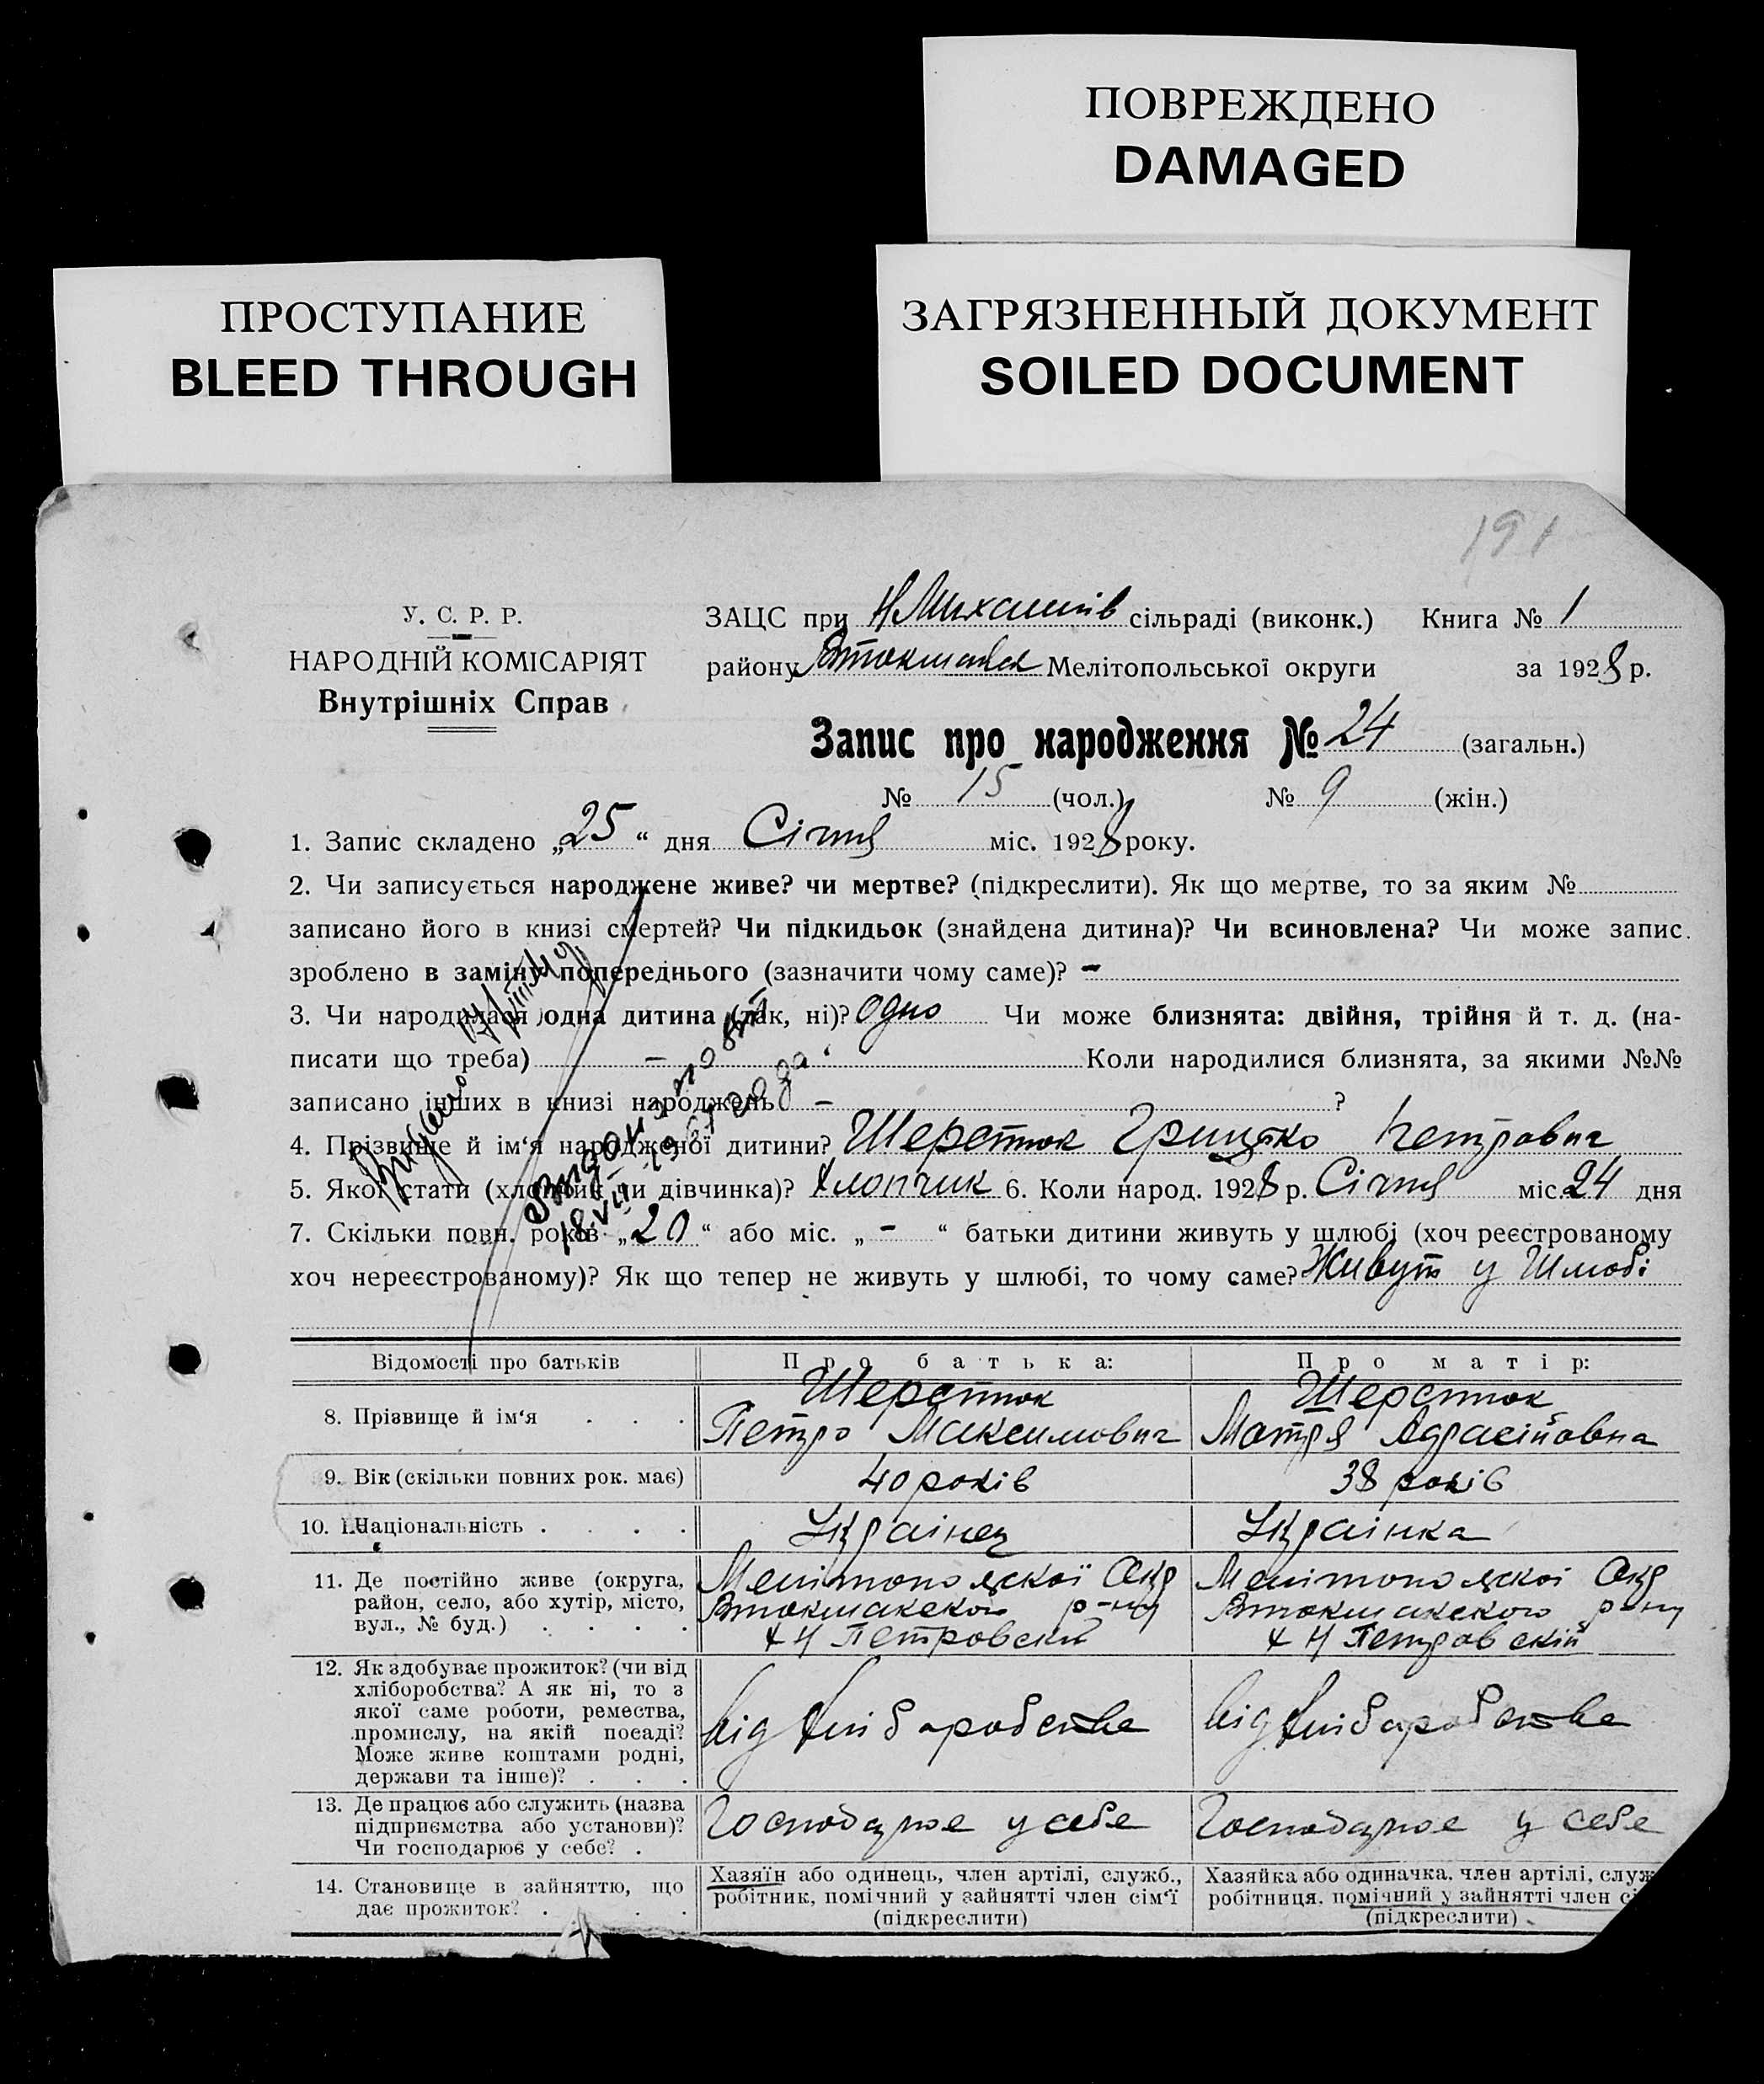 ПОВРЕЖДЕНО
DAMAGED
ПРОСТУПАНИЕ
BLEED THROUGH
ЗАГРЯЗНЕННЫЙ ДОКУМЕНТ
SOILED DOCUMENT
191
У. С. Р. Р.
НАРОДНІЙ КОМІСАРІЯТ
Внутрішніх Справ
ЗАЦС при сільраді (виконк.) Книга № 1
району Мелітопольської округи за 1928 р.
Запис про народження № 24 (загальн.)
№ 15 (чол.) № 9 (жін.)
1. Запис складено „25“ дня Січня міс. 1928 року.
2. Чи записується народжене живе? чи мертве? (підкреслити). Як що мертве, то за яким №
записано його в книзі смертей? Чи підкидьок (знайдена дитина)? Чи всиновлена? Чи може запис.
зроблено в заміну попереднього (зазначити чому саме)? -
3. Чи народилася одна дитина (так, ні)? Одно Чи може близнята: двійня, трійня й т. д. (на-
писати що треба) - Коли народилися близнята, за якими №№
записано інших в книзі народжень - ?
4. Прізвище й ім‘я народженої дитини? Шерстюк Грицько Петрович
5. Якої стати (хлопчик чи дівчинка)? Хлопчик 6. Коли народ. 1928 р. Січня міс. 24 дня
7. Скільки повн. років „20“ або міс. „-“ батьки дитини живуть у шлюбі (хоч реєстрованому
хоч нереєстрованому)? Як що тепер не живуть у шлюбі, то чому саме? Живут у Шлюбі
Відомості про батьків Про батька: Про матір:
8. Прізвище й ім‘я . . .
Шерстюк
Петро Максимович
Шерстюк
Мотря
9. Вік (скільки повних рок. має) 40 років 38 років
10. Національність . . . . Українец Українка
11. Де постійно живе (округа,
район, село, або хутір, місто,
вул., № буд.) . . . .
Мелітопольскої Окр
Втокмакского р-ну
х Н Петровский
Мелітопольскої Окр
Втокмакского р-ну
х Н Петровский
12. Як здобуває прожиток? (чи від
хліборобства? А як ні, то з
якої саме роботи, ремества,
промислу, на якій посаді?
Може живе коштами родні,
держави та інше)? . . .
від хліборобства
від хліборобства
13. Де працює або служить (назва
підприємства або установи)?
Чи господарює у себе? .
Господарює у себе
Господарює у себе
14. Становище в зайняттю, що
дає прожиток? . . .
Хазяїн або одинець, член артілі, служб.,
робітник, помічний у зайнятті член сім‘ї
(підкреслити)
Хазяйка або одиначка, член артілі, служ
робітниця, помічний у зайнятті член сі
(підкреслити)